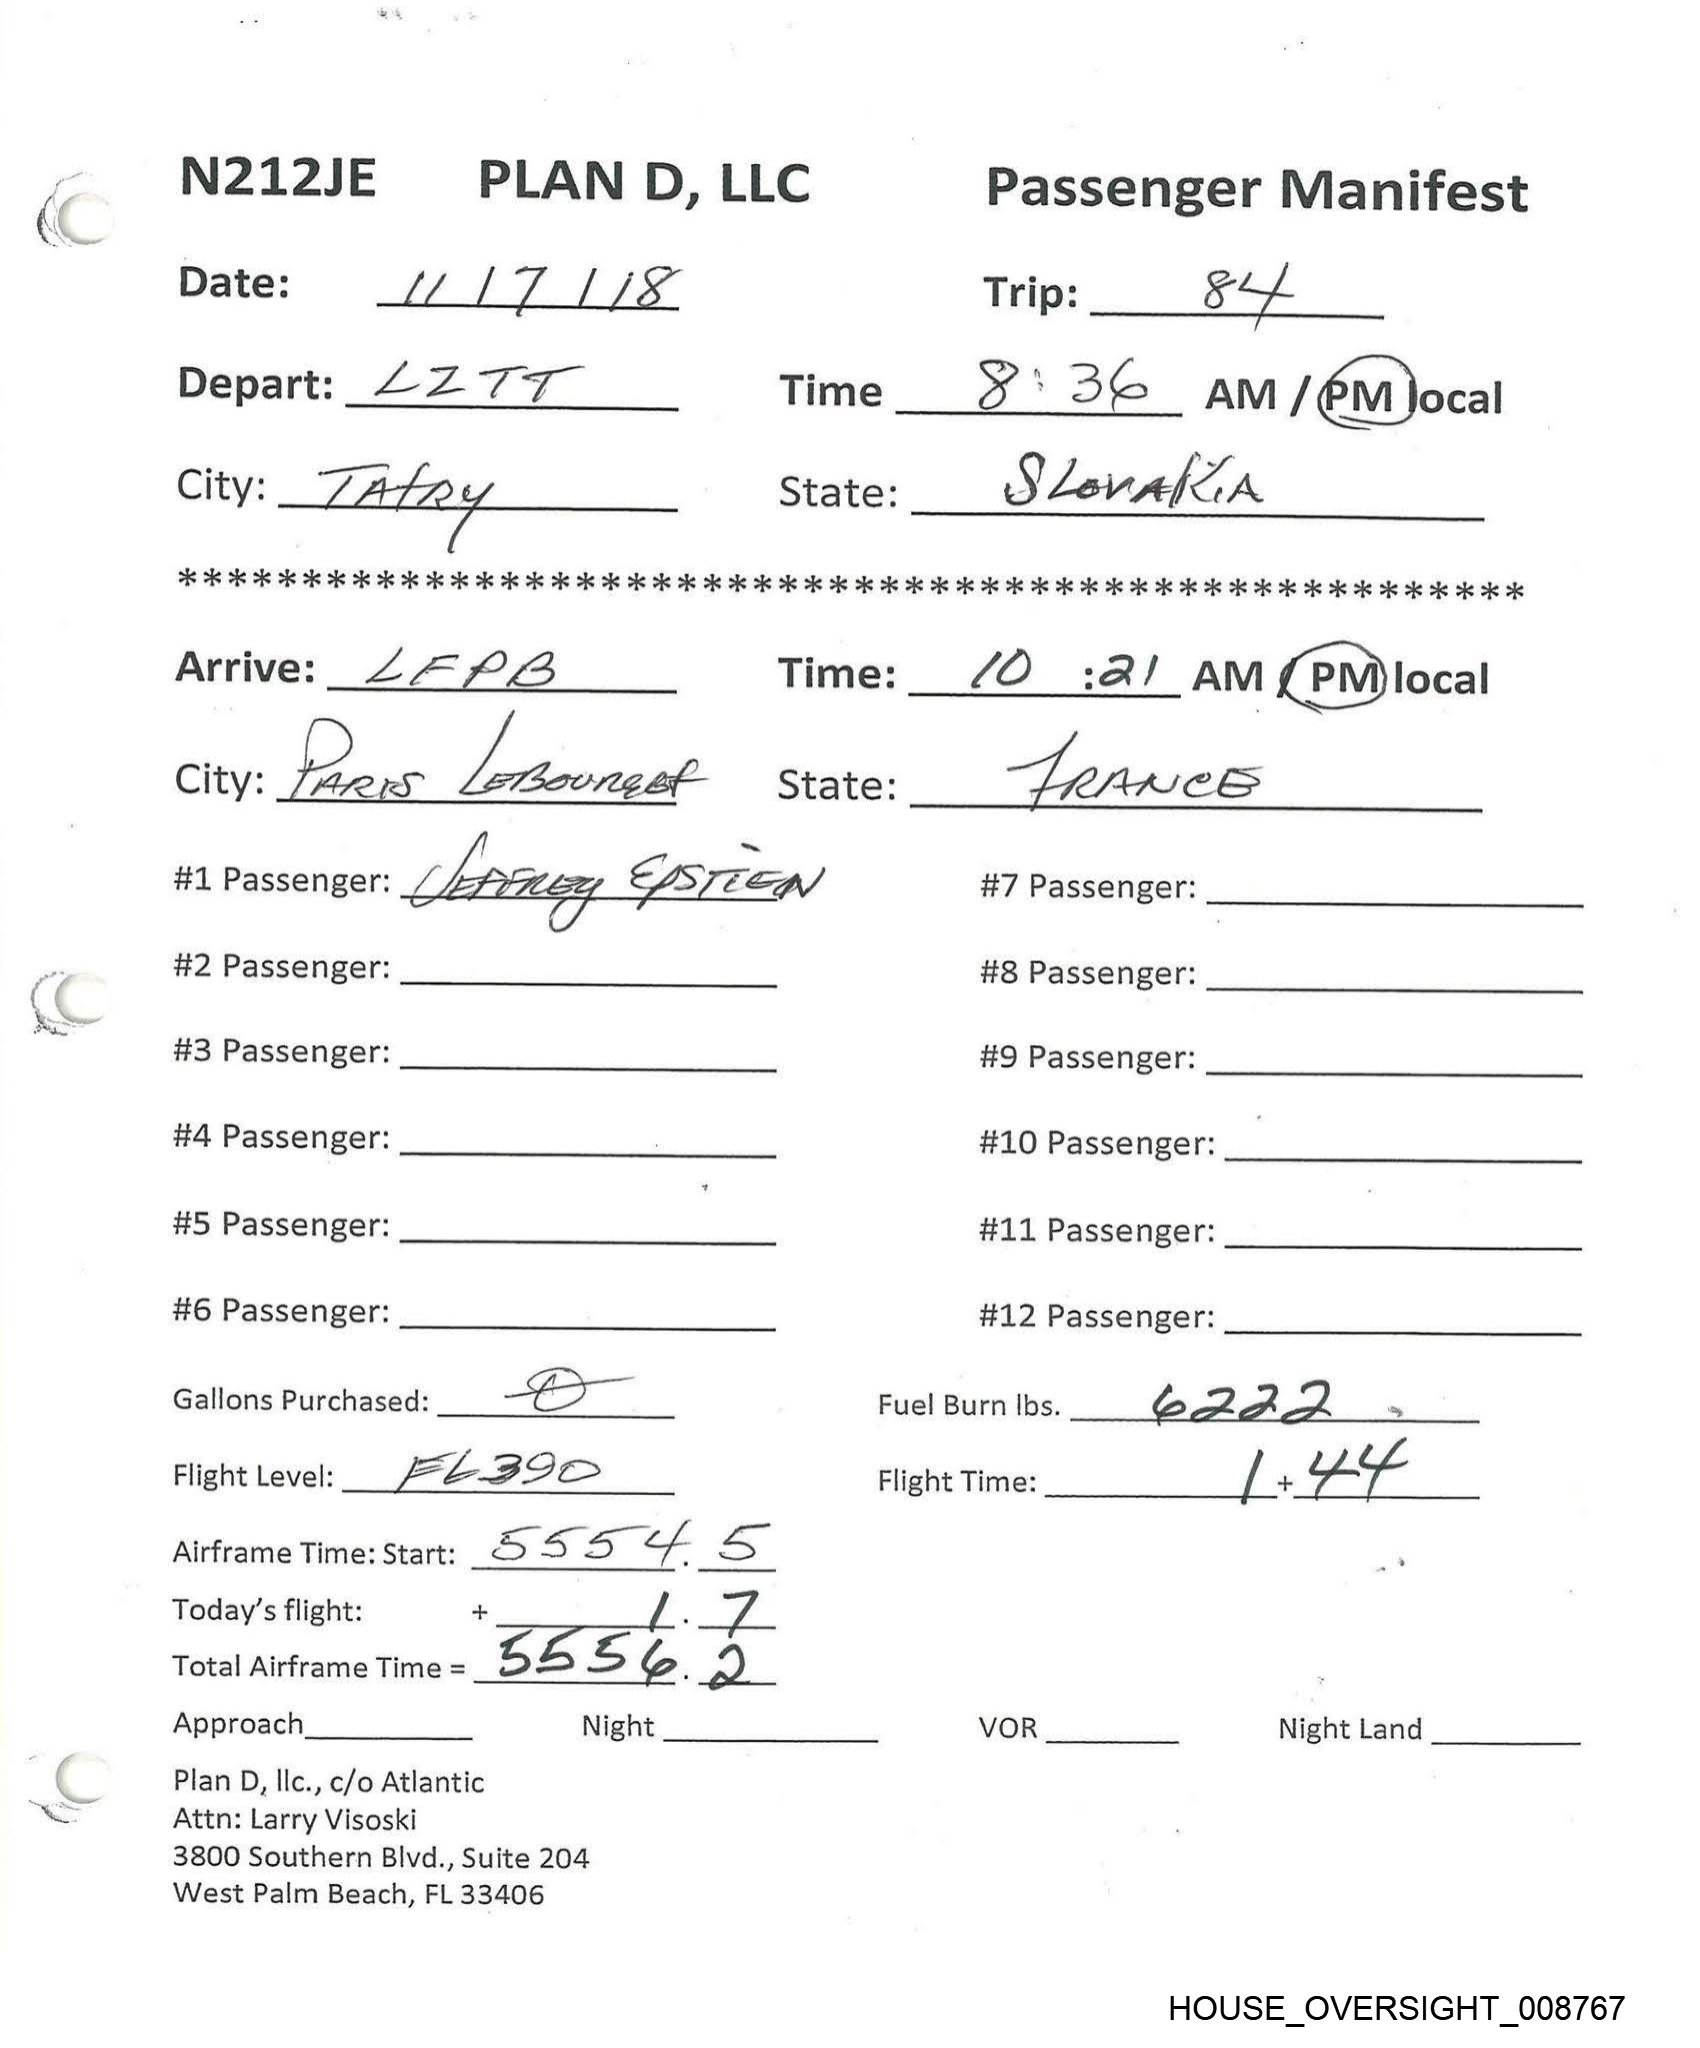 N212JE PLAN D, LLC Passenger Manifest
Date: 11/7/18 Trip: 84
Depart: LZTT Time 8:36 AM / PM local
City: TAtRy State: SLOVAKiA
******************************************************
Arrive: LFPB Time: 10 :21 AM / PM local
City: PARIS LEBOURGEt State: FRANCE
#1 Passenger: JEFFREy EPSTIEN #7 Passenger:
#2 Passenger: #8 Passenger:
#3 Passenger: #9 Passenger:
#4 Passenger: #10 Passenger:
#5 Passenger: #11 Passenger:
#6 Passenger: #12 Passenger:
Gallons Purchased: 0 Fuel Burn lbs. 6222
Flight Level: FL390 Flight Time: 1 + 44
Airframe Time: Start: 5554.5
Today's flight: + 1.7
Total Airframe Time = 5556.2
Approach Night VOR Night Land
Plan D, llc., c/o Atlantic
Attn: Larry Visoski
3800 Southern Blvd., Suite 204
West Palm Beach, FL 33406
HOUSE_OVERSIGHT_008767